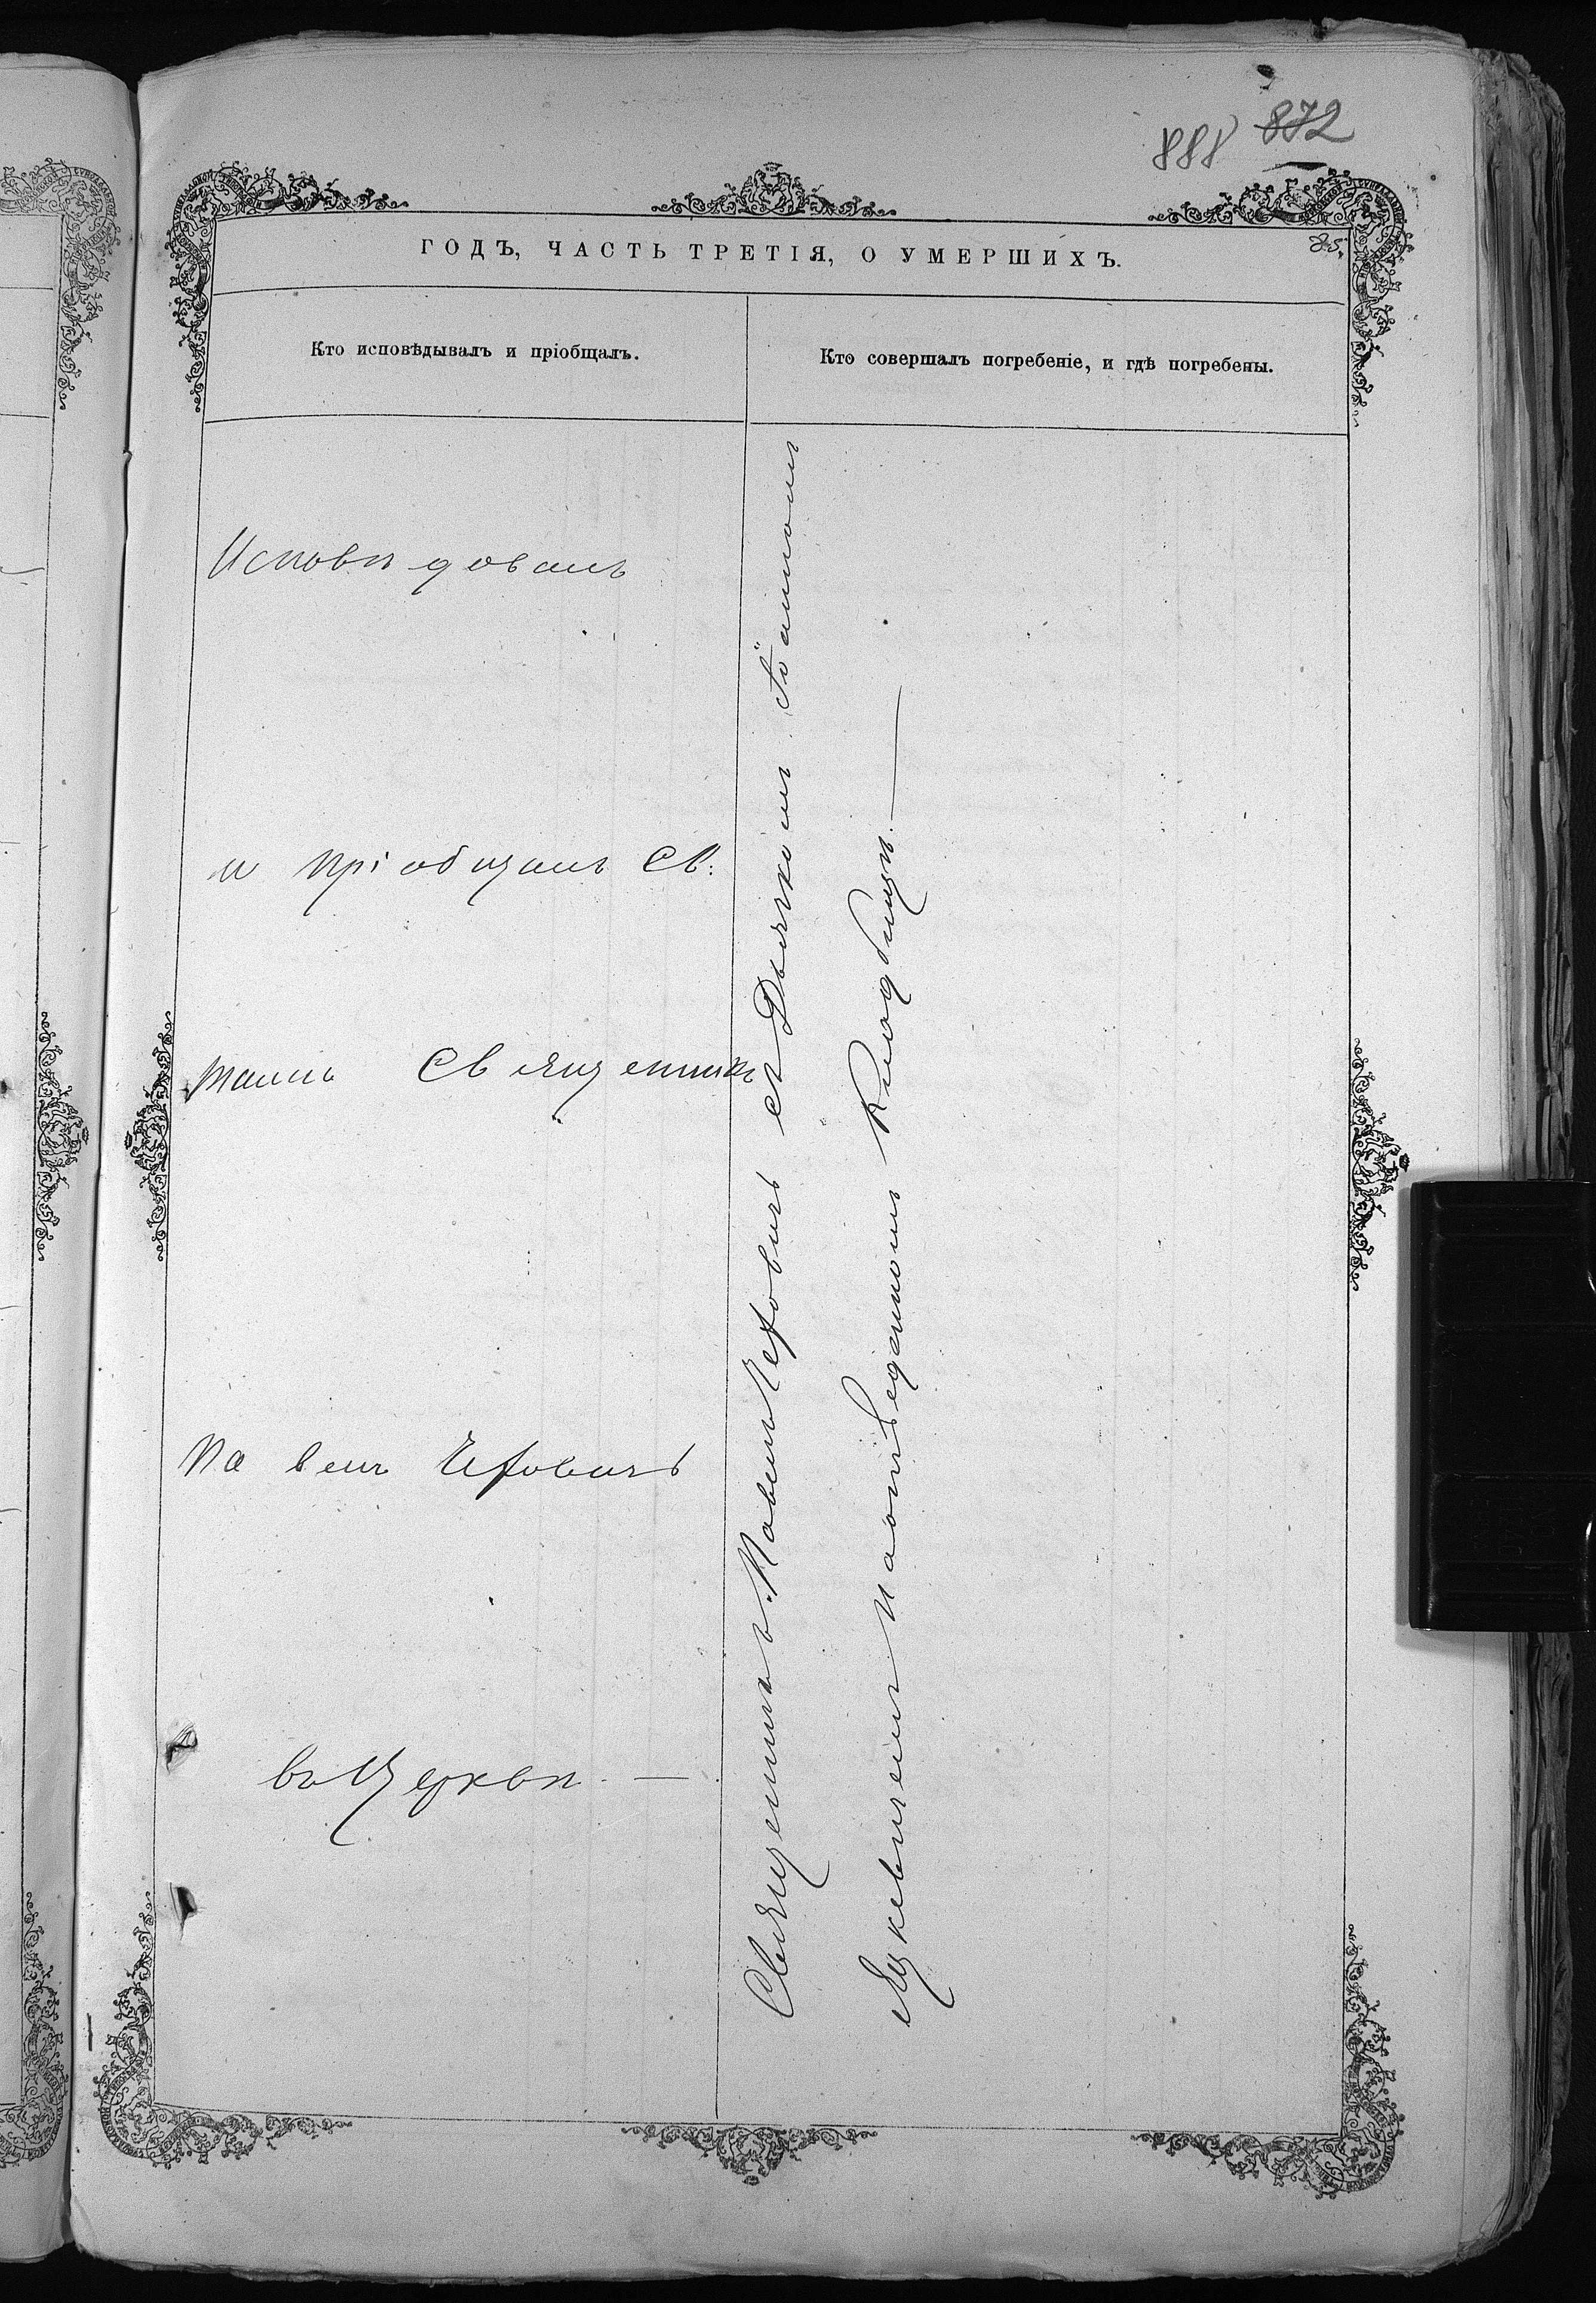 888 872
ГОДЪ, ЧАСТЬ ТРЕТІЯ, О УМЕРШИХЪ.
Кто исповѣдывалъ и пріобщалъ.
Кто совершалъ погребеніе, и гдѣ погребены.
Исповѣдовалъ
и пріобщалъ Св:
таинъ Священникъ
Павелъ
въ Церкви. —
Священникъ Павелъ съ Дьячкомъ Іоанномъ
Яцкевичемъ на отведенномъ Кладбищѣ. —